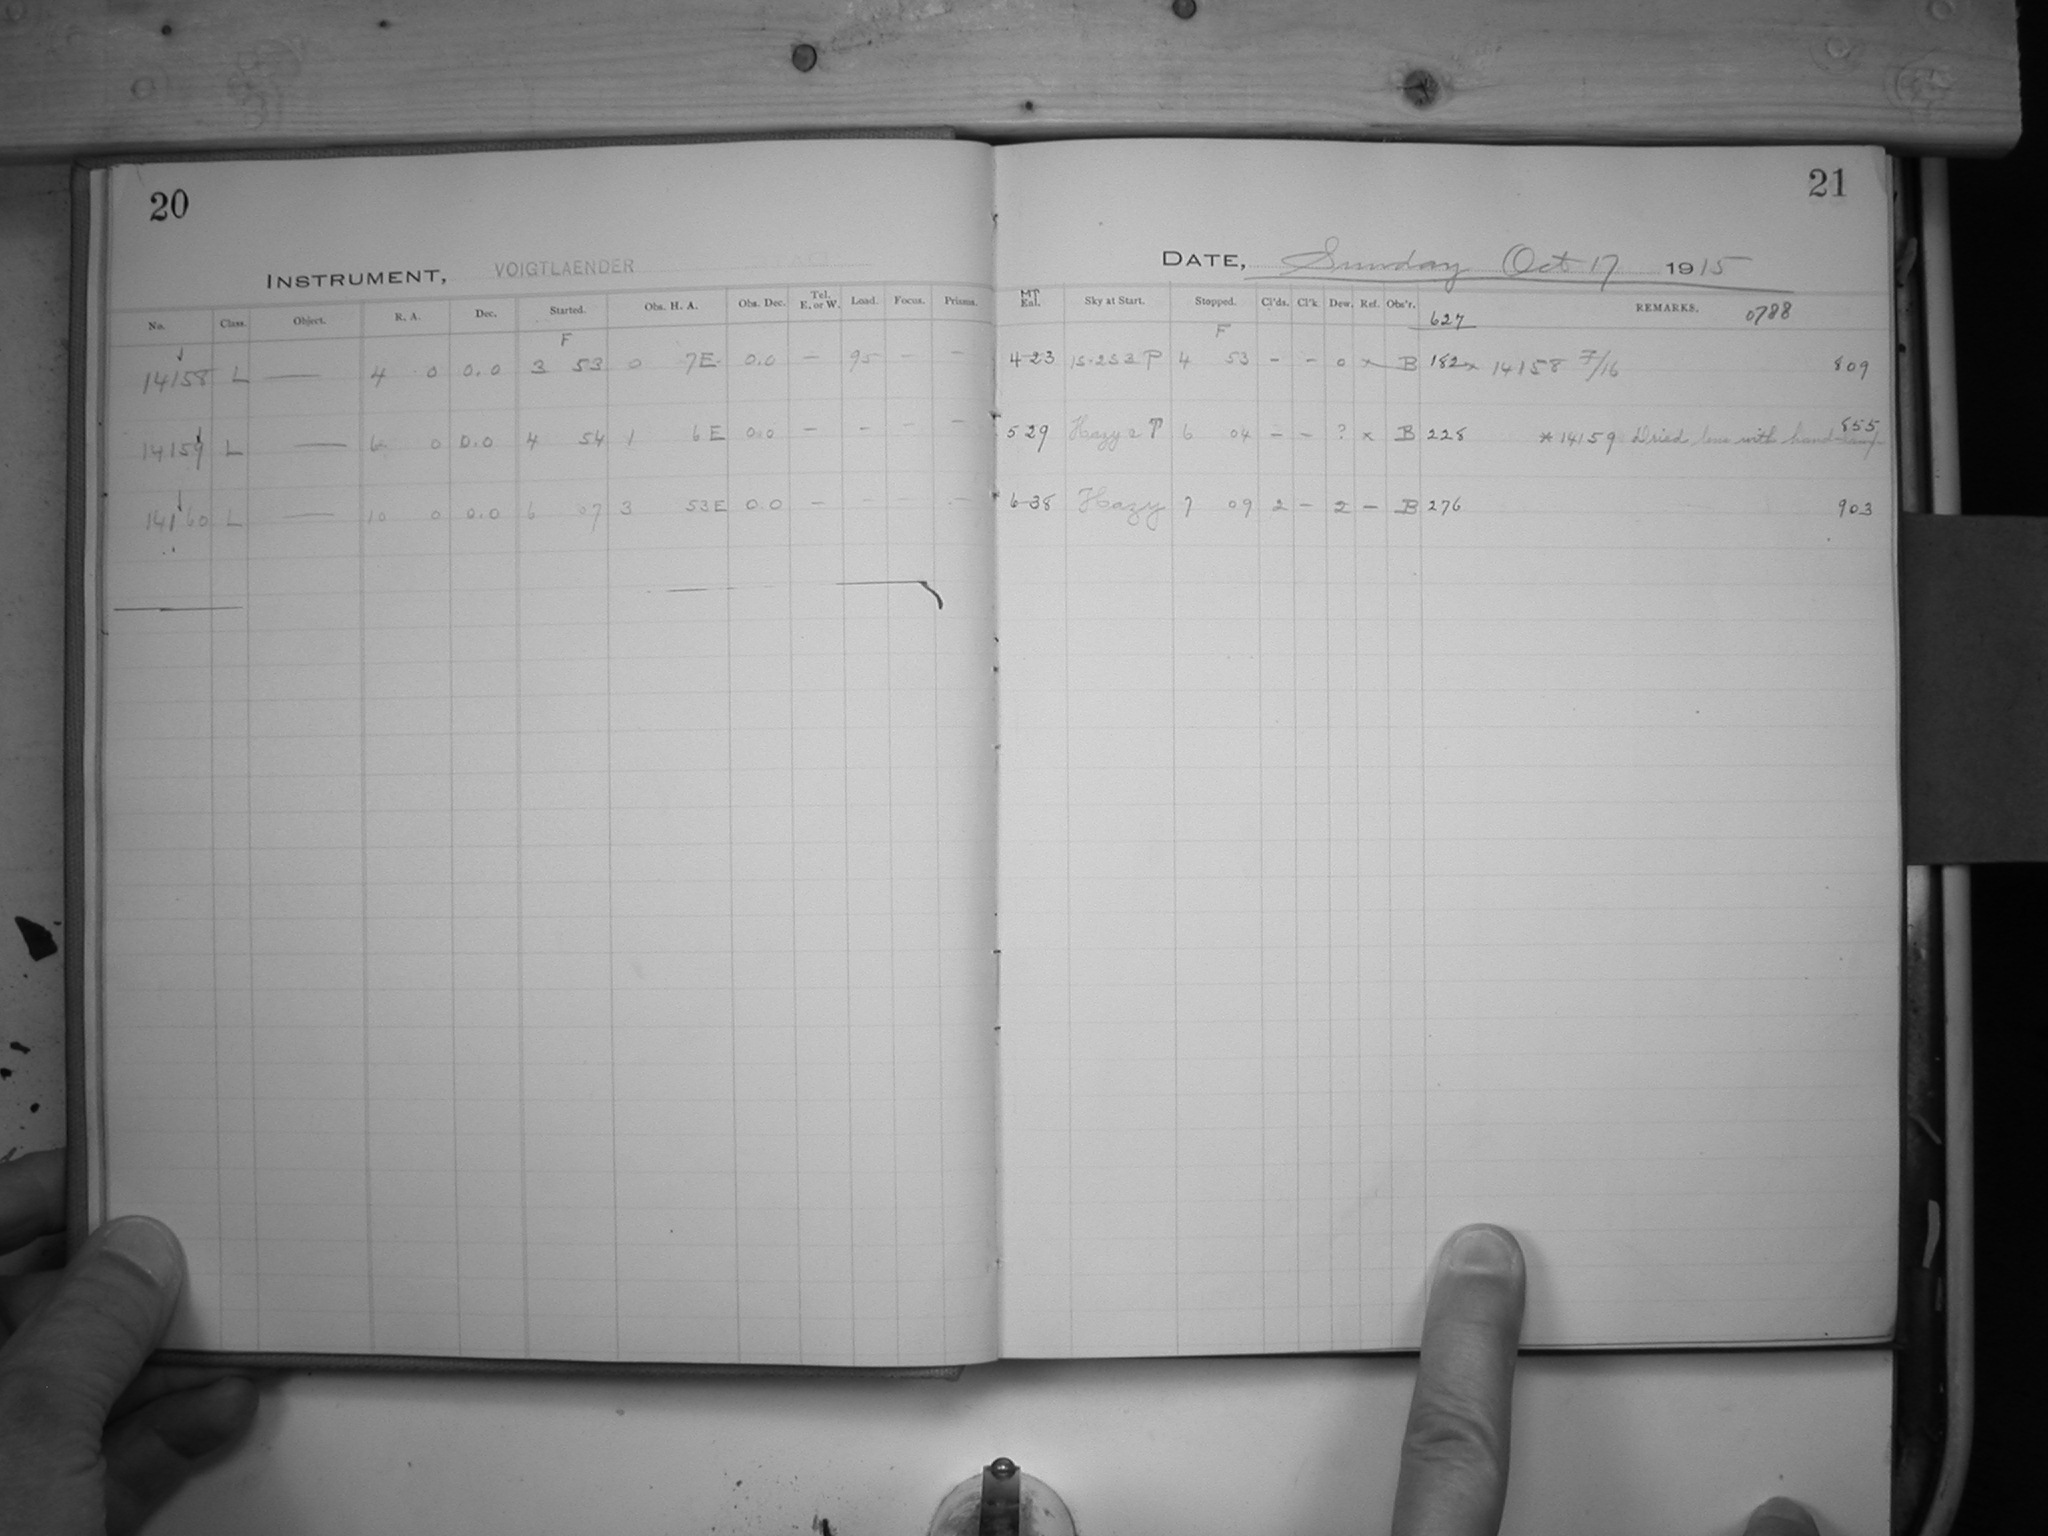 20
INSTRUMENT, VOIGTLAENDER
No. Class. Object. R. A. Dec. Started. Obs. H. A. Obs. Dec. Tel. E. or W. Load. Focus. Prisms.
F
14158 L — 4 0 0.0 3 53 0 7E 0.0 — 95 — —
14159 L — 6 0 0.0 4 54 1 6E 0.0 — - — —
14160 L — 10 0 0.0 6 07 3 53E 0.0 — — — —
21
DATE, Sunday Oct 17 1915
MT Sky at Start. Stopped. Cl'ds. Cl'k Dew. Ref. Obs'r. 627 REMARKS. 0788
F
4-23 4 53 - - 0 x B 182 x 14158 7/16 809
5 29 Hazy 6 04 - - ? x B 228 * 14159 Dried lens with hand 855
6-38 Hazy 7 09 2 - 2 - B 276 903